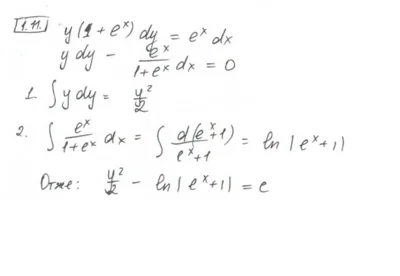 1.11. y(1 + eˣ) dy = eˣ dx
y dy - eˣ/(1+eˣ) dx = 0
1. ∫ y dy = y²/2
2. ∫ eˣ/(1+eˣ) dx = ∫ d(eˣ+1)/(eˣ+1) = ln |eˣ+1|
Ответ: y²/2 - ln |eˣ+1| = c